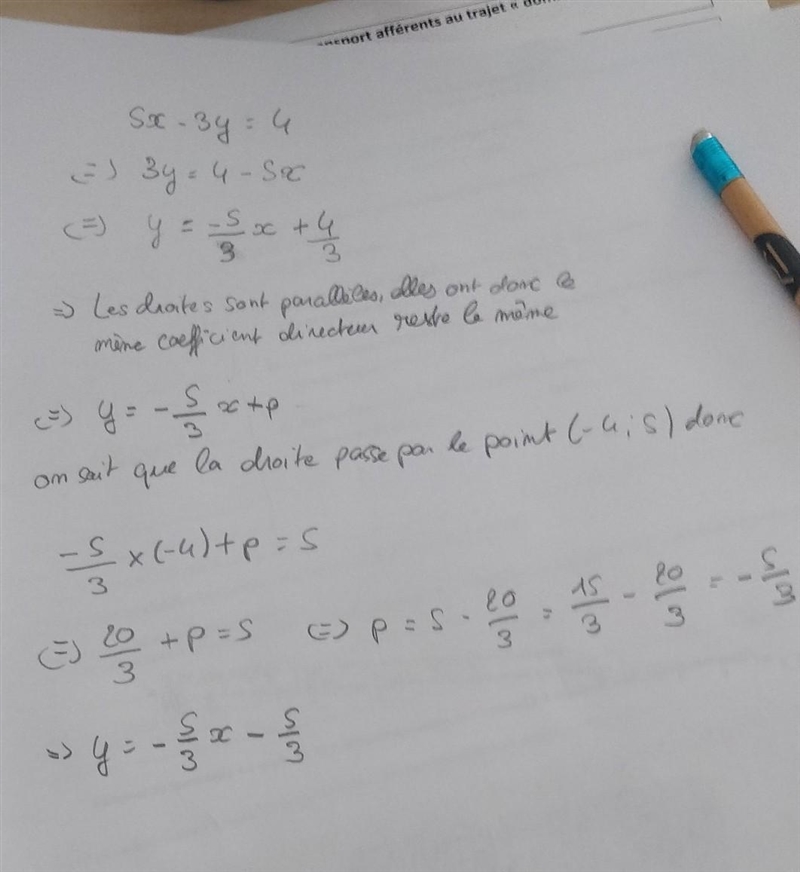 ansport afférents au trajet « dom
5x - 3y = 4
<=> 3y = 4 - 5x
<=> y = -5/3 x + 4/3
=> Les droites sont parallèles, elles ont donc le
même coefficient directeur reste le même
<=> y = -5/3 x + p
on sait que la droite passe par le point (-4; 5) donc
-5/3 × (-4) + p = 5
<=> 20/3 + p = 5 <=> p = 5 - 20/3 = 15/3 - 20/3 = -5/3
=> y = -5/3 x - 5/3